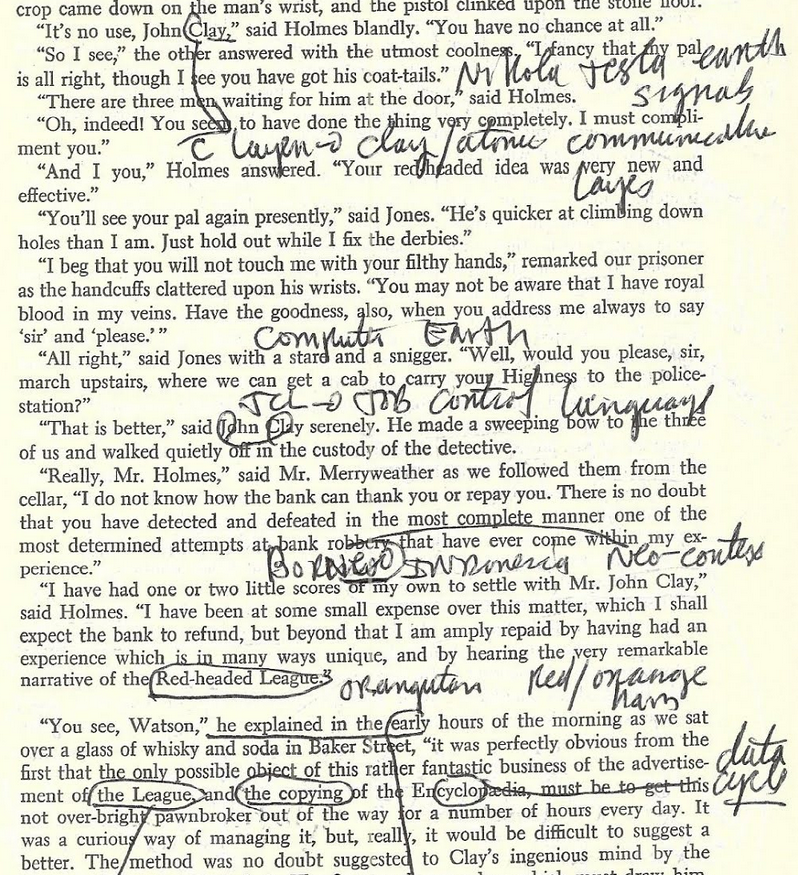 crop came down on the man's wrist, and the pistol clinked upon the stone floor.
"It's no use, John Clay," said Holmes blandly. "You have no chance at all."
"So I see," the other answered with the utmost coolness. "I fancy that my pal
is all right, though I see you have got his coat-tails." Nikola Tesla earth
signals
"There are three men waiting for him at the door," said Holmes.
"Oh, indeed! You seem to have done the thing very completely. I must compli-
ment you." clay/atomic
"And I you," Holmes answered. "Your red-headed idea was very new and
effective."
"You'll see your pal again presently," said Jones. "He's quicker at climbing down
holes than I am. Just hold out while I fix the derbies."
"I beg that you will not touch me with your filthy hands," remarked our prisoner
as the handcuffs clattered upon his wrists. "You may not be aware that I have royal
blood in my veins. Have the goodness, also, when you address me always to say
'sir' and 'please.'"
Computer Earth
"All right," said Jones with a stare and a snigger. "Well, would you please, sir,
march upstairs, where we can get a cab to carry your Highness to the police-
station?" JCL → JOB control language
"That is better," said John Clay serenely. He made a sweeping bow to the three
of us and walked quietly off in the custody of the detective.
"Really, Mr. Holmes," said Mr. Merryweather as we followed them from the
cellar, "I do not know how the bank can thank you or repay you. There is no doubt
that you have detected and defeated in the most complete manner one of the
most determined attempts at bank robbery that have ever come within my ex-
perience." BORNEO INDonesia Neo-cortex
"I have had one or two little scores of my own to settle with Mr. John Clay,"
said Holmes. "I have been at some small expense over this matter, which I shall
expect the bank to refund, but beyond that I am amply repaid by having had an
experience which is in many ways unique, and by hearing the very remarkable
narrative of the Red-headed League." orangutan Red/orange
hair
"You see, Watson," he explained in the early hours of the morning as we sat
over a glass of whisky and soda in Baker Street, "it was perfectly obvious from the
first that the only possible object of this rather fantastic business of the advertise-
ment of the League, and the copying of the Encyclopædia, must be to get this
data
cycle
not over-bright pawnbroker out of the way for a number of hours every day. It
was a curious way of managing it, but, really, it would be difficult to suggest a
better. The method was no doubt suggested to Clay's ingenious mind by the